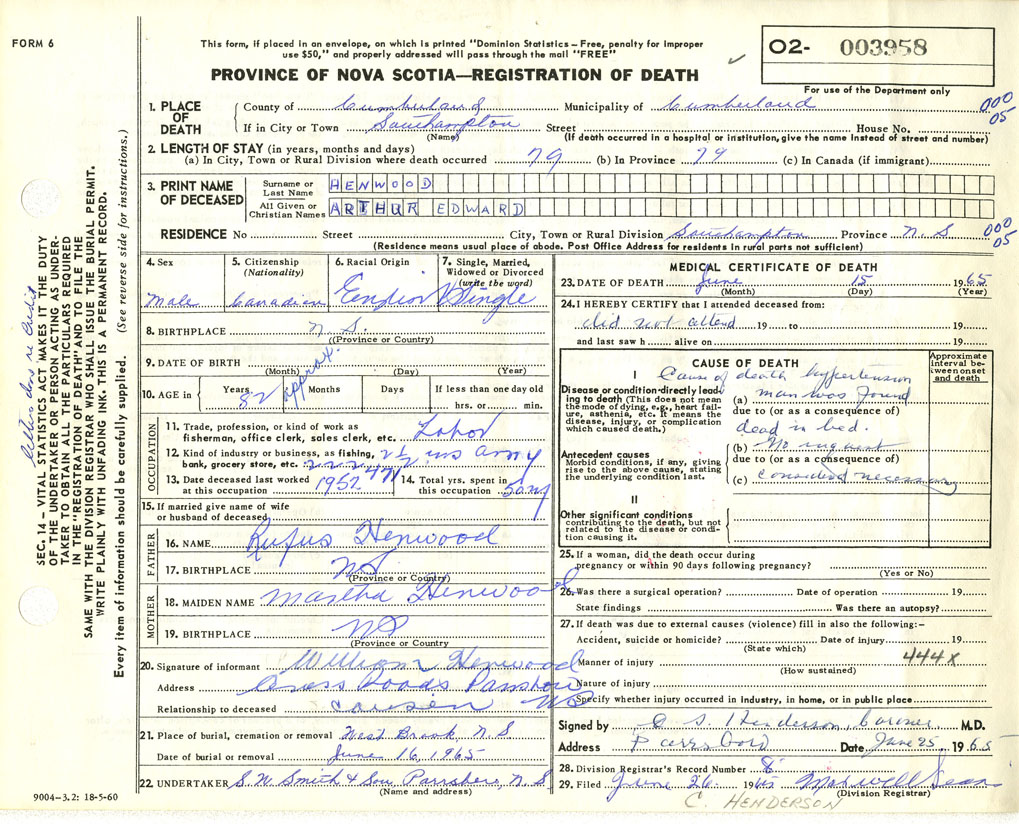 FORM 6
This form, if placed in an envelope, on which is printed "Dominion Statistics – Free, penalty for improper
use $50," and properly addressed will pass through the mail "FREE"
PROVINCE OF NOVA SCOTIA—REGISTRATION OF DEATH
O2- 003958
For use of the Department only
1. PLACE OF DEATH County of Cumberland Municipality of Cumberland 000 05
If in City or Town Southampton Street House No.
(Name) (If death occurred in a hospital or institution, give the name instead of street and number)
2. LENGTH OF STAY (in years, months and days)
(a) In City, Town or Rural Division where death occurred 79 (b) In Province 79 (c) In Canada (if immigrant)
3. PRINT NAME OF DECEASED Surname or Last Name HENWOOD
All Given or Christian Names ARTHUR EDWARD
RESIDENCE No Street City, Town or Rural Division Southampton Province N.S 000 05
(Residence means usual place of abode. Post Office Address for residents in rural parts not sufficient)
4. Sex Male
5. Citizenship (Nationality) Canadian
6. Racial Origin
7. Single, Married, Widowed or Divorced (write the word) Single
8. BIRTHPLACE N.S.
(Province or Country)
9. DATE OF BIRTH
(Month) (Day) (Year)
10. AGE in Years 82 approx. Months Days If less than one day old
hrs. or min.
OCCUPATION
11. Trade, profession, or kind of work as
fisherman, office clerk, sales clerk, etc. Labor
12. Kind of industry or business, as fishing,
bank, grocery store, etc. army
13. Date deceased last worked at this occupation 1952
14. Total yrs. spent in this occupation
15. If married give name of wife
or husband of deceased
FATHER
16. NAME Rufus Henwood
17. BIRTHPLACE NS
(Province or Country)
MOTHER
18. MAIDEN NAME Martha Henwood
19. BIRTHPLACE NS
(Province or Country)
20. Signature of informant William Henwood
Address Cross Roads Parrsboro NS
Relationship to deceased cousen
21. Place of burial, cremation or removal West Brook, N.S
Date of burial or removal June 16, 1965
22. UNDERTAKER S.W. Smith & Son, Parrsboro, N.S
(Name and address)
MEDICAL CERTIFICATE OF DEATH
23. DATE OF DEATH June 15 1965
(Month) (Day) (Year)
24. I HEREBY CERTIFY that I attended deceased from:
did not attend 19 to 19
and last saw h alive on 19
CAUSE OF DEATH
Approximate interval between onset and death
I Cause of death hypertension
Disease or condition directly leading to death (This does not mean the mode of dying, e.g., heart failure, asthenia, etc. It means the disease, injury, or complication which caused death.)
(a) man was found
due to (or as a consequence of)
dead in bed.
(b) No inquest
Antecedent causes
Morbid conditions, if any, giving rise to the above cause, stating the underlying condition last.
due to (or as a consequence of)
(c) considered necessary
II
Other significant conditions
contributing to the death, but not related to the disease or condition causing it.
25. If a woman, did the death occur during
pregnancy or within 90 days following pregnancy?
(Yes or No)
26. Was there a surgical operation? Date of operation 19
State findings Was there an autopsy?
27. If death was due to external causes (violence) fill in also the following:—
Accident, suicide or homicide? Date of injury 19
(State which)
444X
Manner of injury
(How sustained)
Nature of injury
Specify whether injury occurred in industry, in home, or in public place
Signed by C S. Henderson, Coroner M.D.
Address Parrsboro Date June 25, 1965
28. Division Registrar's Record Number 8
29. Filed June 26 1965 Maxwell
(Division Registrar)
C. HENDERSON
9004–3.2: 18-5-60
SEC. 14 – VITAL STATISTICS ACT MAKES IT THE DUTY
OF THE UNDERTAKER OR PERSON ACTING AS UNDERTAKER TO OBTAIN ALL THE PARTICULARS REQUIRED
IN THE "REGISTRATION OF DEATH" AND TO FILE THE
SAME WITH THE DIVISION REGISTRAR WHO SHALL ISSUE THE BURIAL PERMIT.
WRITE PLAINLY WITH UNFADING INK. THIS IS A PERMANENT RECORD.
Every item of information should be carefully supplied. (See reverse side for instructions.)